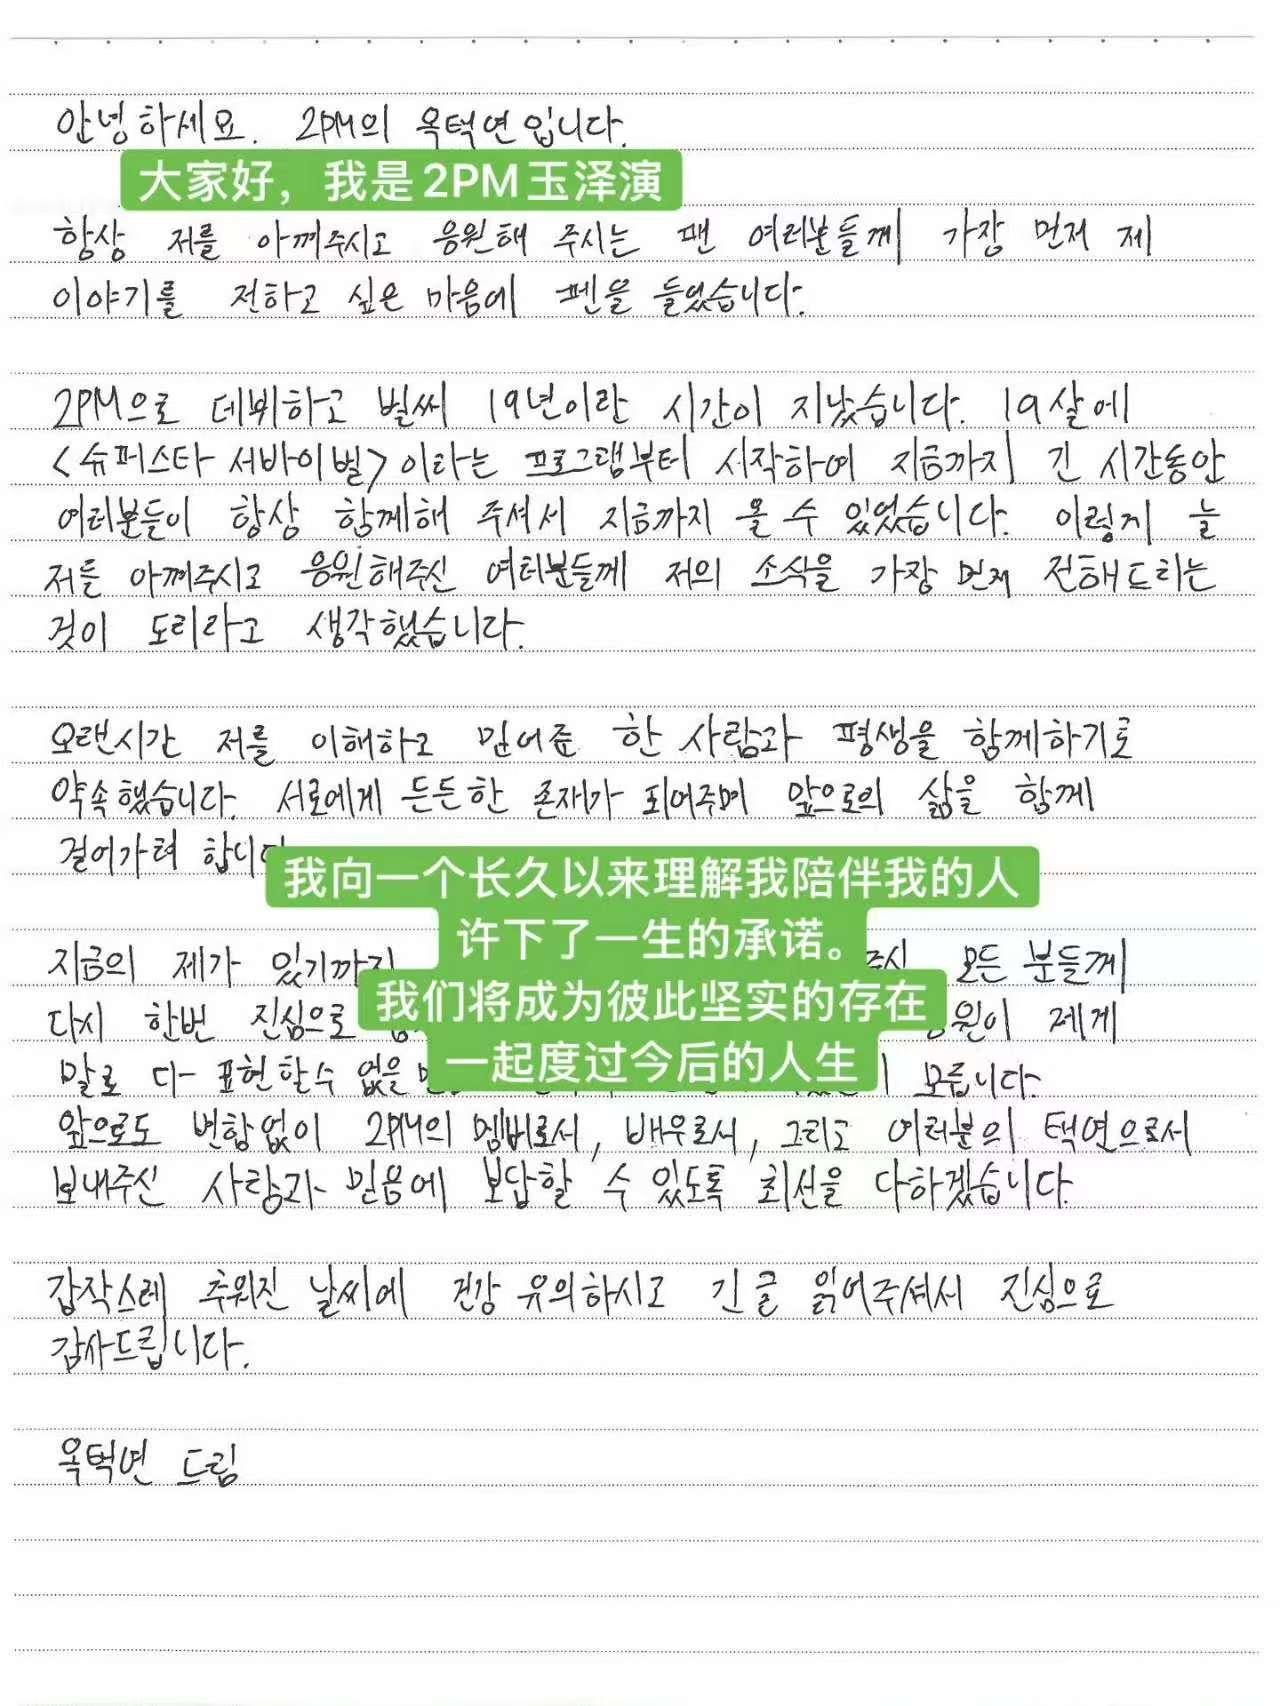 안녕하세요. 2PM의 옥택연입니다.
大家好，我是2PM玉泽演
항상 저를 아껴주시고 응원해 주시는 팬 여러분들께 가장 먼저 제
이야기를 전하고 싶은 마음에 펜을 들었습니다.
2PM으로 데뷔하고 벌써 19년이란 시간이 지났습니다. 19살에
<슈퍼스타 서바이벌> 이라는 프로그램부터 시작하여 지금까지 긴 시간동안
여러분들이 항상 함께해 주셔서 지금까지 올 수 있었습니다. 이렇게 늘
저를 아껴주시고 응원해주신 여러분들께 저의 소식을 가장 먼저 전해드리는
것이 도리라고 생각했습니다.
오랜시간 저를 이해하고 믿어준 한 사람과 평생을 함께하기로
약속했습니다. 서로에게 든든한 존재가 되어주며 앞으로의 삶을 함께
걸어가려 합니다
我向一个长久以来理解我陪伴我的人
许下了一生的承诺。
지금의 제가 있기까지 모든 분들께
我们将成为彼此坚实的存在
다시 한번 진심으로 응원이 제게
一起度过今后的人生
말로 다 표현할수 없을 모릅니다.
앞으로도 변함없이 2PM의 멤버로서, 배우로서, 그리고 여러분의 택연으로서
보내주신 사랑과 믿음에 보답할 수 있도록 최선을 다하겠습니다.
갑작스레 추워진 날씨에 건강 유의하시고 긴 글 읽어주셔서 진심으로
감사드립니다.
옥택연 드림